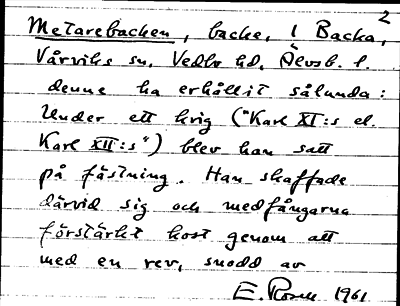 2
Metarebacken, backe, 1 Backa,
Vårviks sn, Vedbo hd, Älvsb. l.
denne ha erhållit sålunda:
Under ett krig ("Karl XI:s el.
Karl XII:s") blev han satt
på fästning. Han skaffade
därvid sig och medfångarna
förstärkt kost genom att
med en rev, snodd av
E. Rosell 1961